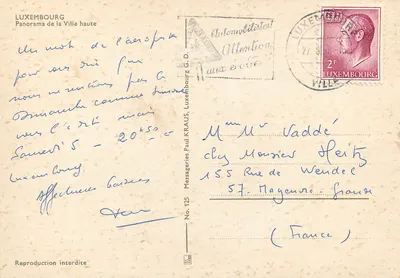 LUXEMBOURG
Panorama de la Ville haute
Un mot de l'aéroport
pour vous dire que
nous ne rentrons pas le
Dimanche comme
vous l'a dit mais
Samedi 5 - 20h50
Luxembourg
Affectueux baisers
Reproduction interdite
No. 125 Messageries Paul KRAUS, Luxembourg G. D.
Automobilistes!
Attention
aux écoliers
LUXEMBOURG
VILLE
2F
LUXEMBOURG
M. Mr Vaddé
chez Monsieur Heitz
155 Rue de Wendel
57. Hagondange
(France)